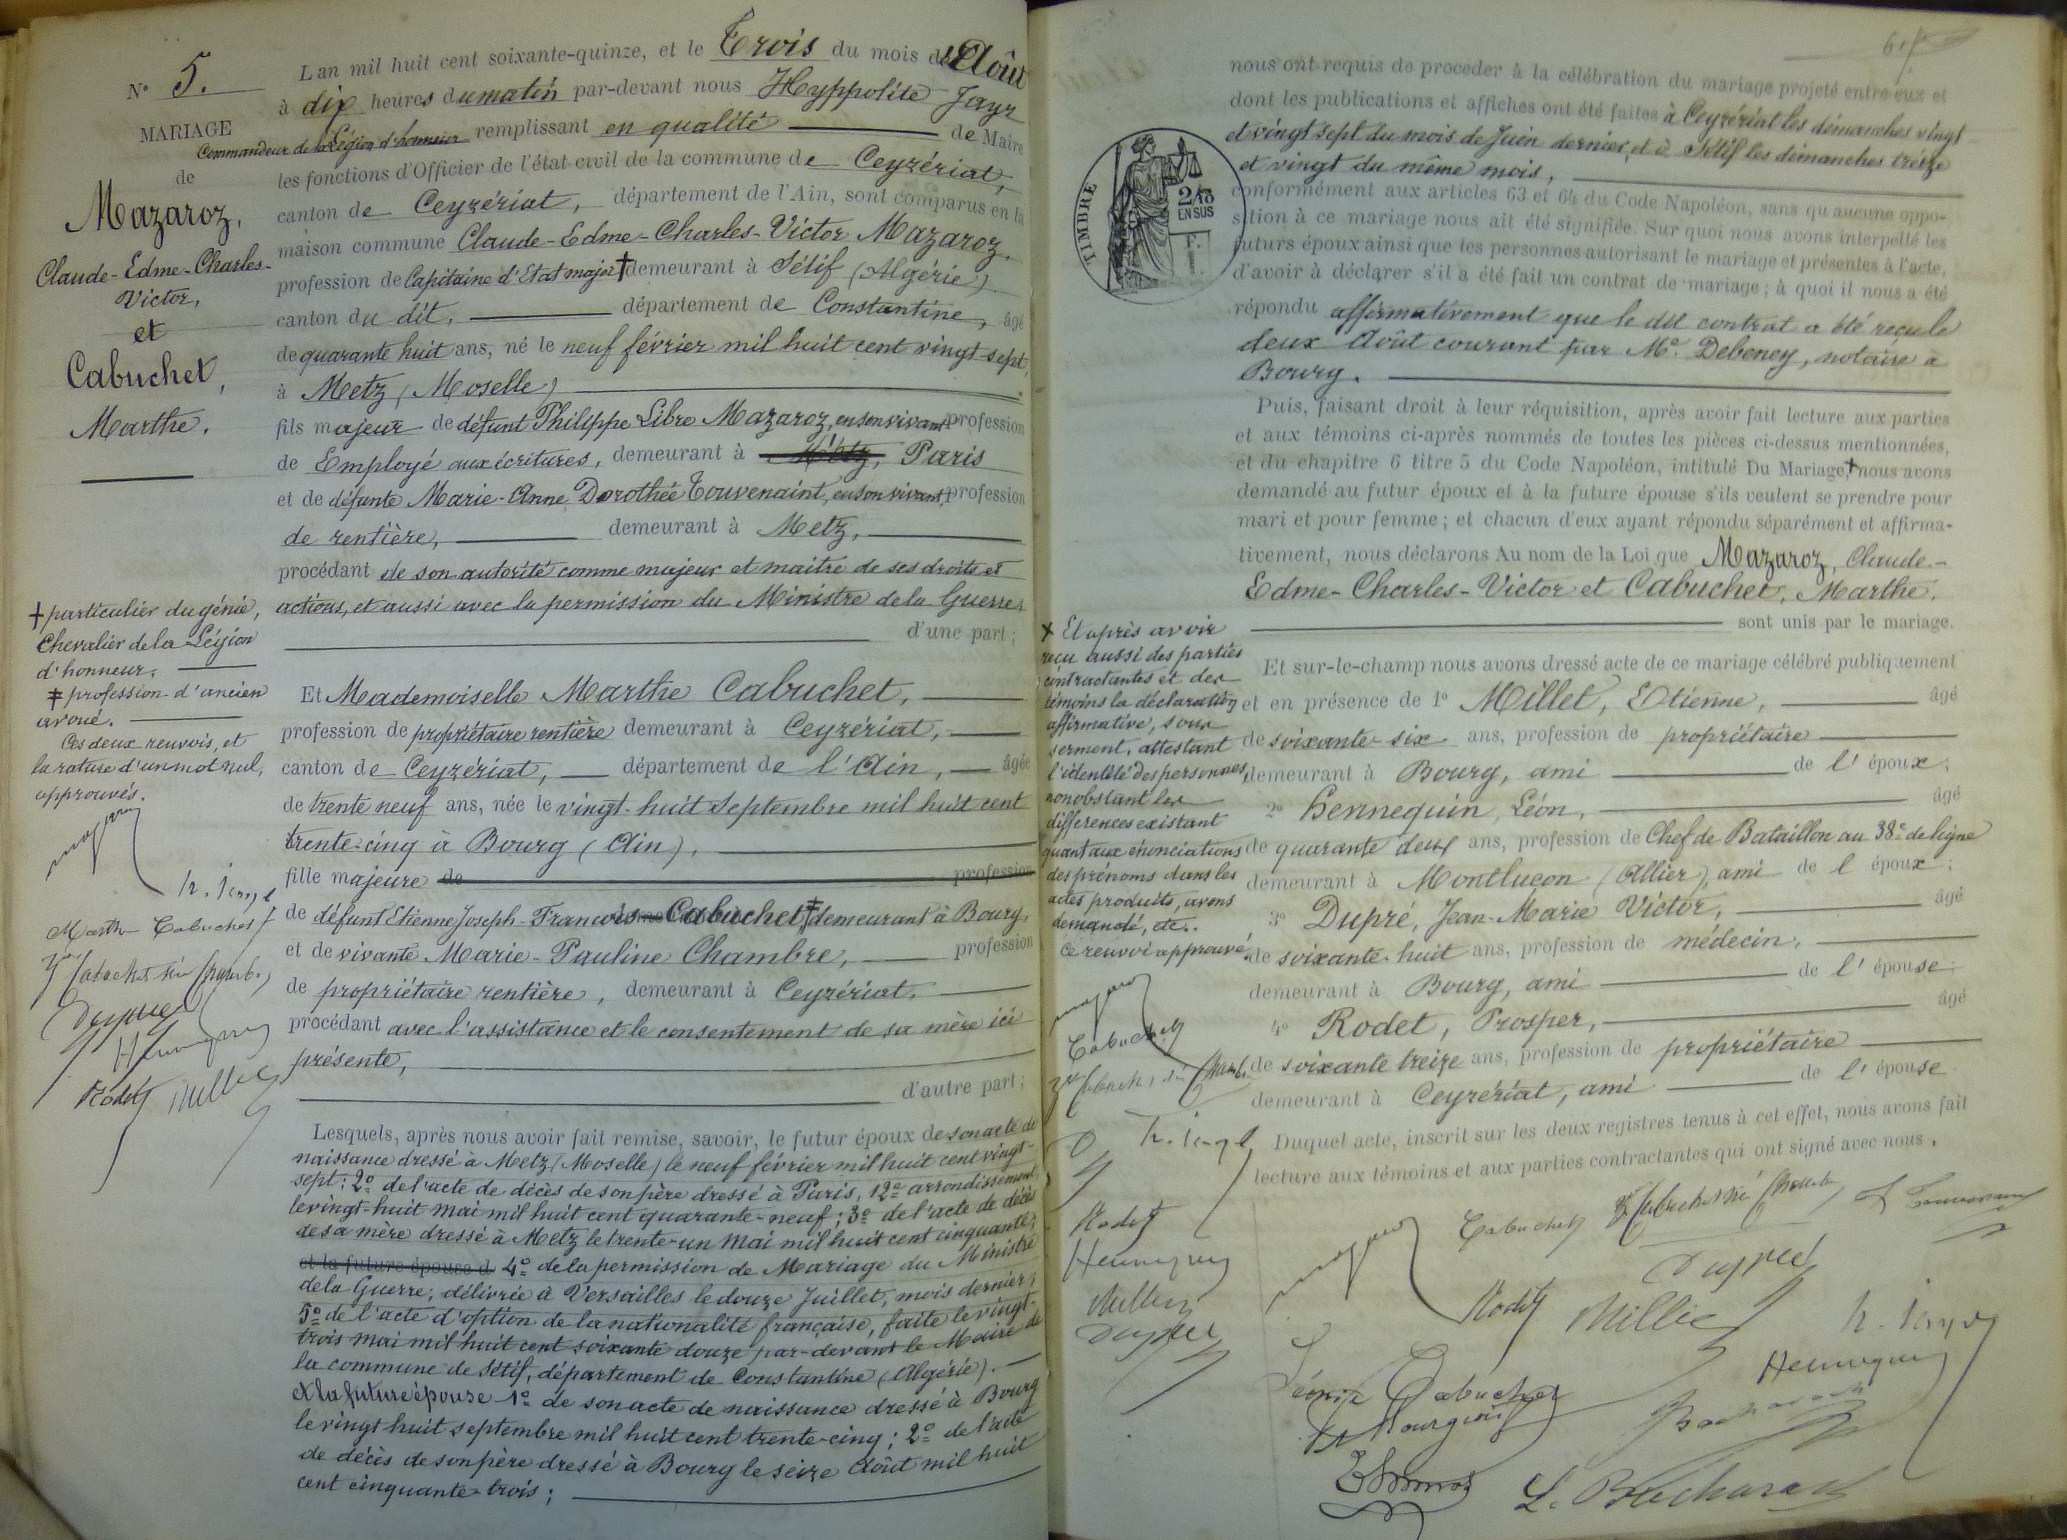 N° 5.
MARIAGE
de
Mazaroz,
Claude-Edme-Charles-
Victor,
et
Cabuchet,
Marthe.
L'an mil huit cent soixante-quinze, et le Trois du mois d'Août
à dix heures du matin par-devant nous Hyppolite Jayr
Commandeur de la Légion d'honneur remplissant en qualité de Maire
les fonctions d'Officier de l'état civil de la commune de Ceyzériat,
canton de Ceyzériat, département de l'Ain, sont comparus en la
maison commune Claude-Edme-Charles-Victor Mazaroz,
profession de Capitaine d'Etat major † demeurant à Sétif (Algérie)
canton du dit, département de Constantine, âgé
de quarante huit ans, né le neuf février mil huit cent vingt sept,
à Metz (Moselle)
fils majeur de défunt Philippe Libre Mazaroz, en son vivant profession
de Employé aux écritures, demeurant à Metz, Paris
et de défunte Marie-Anne Dorothée Touvenaint, en son vivant, profession
de rentière, demeurant à Metz,
procédant de son autorité comme majeur et maitre de ses droits et
actions, et aussi avec la permission du Ministre de la Guerre,
d'une part;
† particulier du génie,
Chevalier de la Légion
d'honneur.
‡ profession d'ancien
avoué.
Ces deux renvois, et
la rature d'un mot nul,
approuvés.
Et Mademoiselle Marthe Cabuchet,
profession de propriétaire rentière demeurant à Ceyzériat,
canton de Ceyzériat, département de l'Ain, âgée
de trente neuf ans, née le vingt-huit Septembre mil huit cent
trente-cinq à Bourg (Ain),
fille majeure de profession
de défunt Etienne Joseph-François Cabuchet ‡ demeurant à Bourg,
et de vivante Marie-Pauline Chambre, profession
de propriétaire rentière, demeurant à Ceyzériat,
procédant avec l'assistance et le consentement de sa mère ici
présente,
d'autre part;
Marthe Cabuchet
Rodet Millet
Lesquels, après nous avoir fait remise, savoir, le futur époux de son acte de
naissance dressé à Metz (Moselle) le neuf février mil huit cent vingt-
sept; 2° de l'acte de décès de son père dressé à Paris, 12e arrondissement
le vingt-huit mai mil huit cent quarante-neuf; 3° de l'acte de décès
de sa mère dressé à Metz le trente-un Mai mil huit cent cinquante;
et la future épouse d 4° de la permission de Mariage du Ministre
de la Guerre, délivrée à Versailles le douze Juillet, mois dernier;
5° de l'acte d'option de la nationalité française, faite le vingt-
trois mai mil huit cent soixante douze par-devant le Maire de
la commune de Sétif, département de Constantine (Algérie).
et la future épouse 1° de son acte de naissance dressé à Bourg
le vingt huit septembre mil huit cent trente-cinq; 2° de l'acte
de décès de son père dressé à Bourg le seize Août mil huit
cent cinquante-trois;
TIMBRE
2/10
EN SUS
nous ont requis de procéder à la célébration du mariage projeté entre eux et
dont les publications et affiches ont été faites à Ceyzériat les démanches vingt
et vingt sept du mois de Juin dernier, et à Sétif les démanches treize
et vingt du même mois,
conformément aux articles 63 et 64 du Code Napoléon, sans qu'aucune oppo-
sition à ce mariage nous ait été signifiée. Sur quoi nous avons interpellé les
futurs époux ainsi que les personnes autorisant le mariage et présentes à l'acte,
d'avoir à déclarer s'il a été fait un contrat de mariage; à quoi il nous a été
répondu affirmativement que le dit contrat a été reçu le
deux Août courant par Me. Debeney, notaire à
Bourg.
Puis, faisant droit à leur réquisition, après avoir fait lecture aux parties
et aux témoins ci-après nommés de toutes les pièces ci-dessus mentionnées,
et du chapitre 6 titre 5 du Code Napoléon, intitulé Du Mariage, † nous avons
demandé au futur époux et à la future épouse s'ils veulent se prendre pour
mari et pour femme; et chacun d'eux ayant répondu séparément et affirma-
tivement, nous déclarons Au nom de la Loi que Mazaroz, Claude-
Edme-Charles-Victor et Cabuchet, Marthe,
sont unis par le mariage.
† Et après avoir
reçu aussi des parties
contractantes et des
témoins la déclaration
affirmative, sous
serment, attestant
l'identité des personnes,
nonobstant les
différences existant
quant aux énonciations
des prénoms dans les
actes produits, avons
demandé, etc.
Ce renvoi approuvé.
Et sur-le-champ nous avons dressé acte de ce mariage célébré publiquement
et en présence de 1° Millet, Etienne, âgé
de soixante-six ans, profession de propriétaire
demeurant à Bourg, ami de l'époux;
2° Hennequin, Léon, âgé
de quarante deux ans, profession de Chef de Bataillon au 38e de ligne
demeurant à Montluçon (Allier), ami de l'époux;
3° Dupré, Jean-Marie Victor, âgé
de soixante-huit ans, profession de médecin,
demeurant à Bourg, ami de l'épouse;
4° Rodet, Prosper, âgé
de soixante treize ans, profession de propriétaire
demeurant à Ceyzériat, ami de l'épouse.
Duquel acte, inscrit sur les deux registres tenus à cet effet, nous avons fait
lecture aux témoins et aux parties contractantes qui ont signé avec nous.
Rodet
Hennequin
Millet
Dupré
Cabuchet
Dupré
Rodet Millet
Hennequin